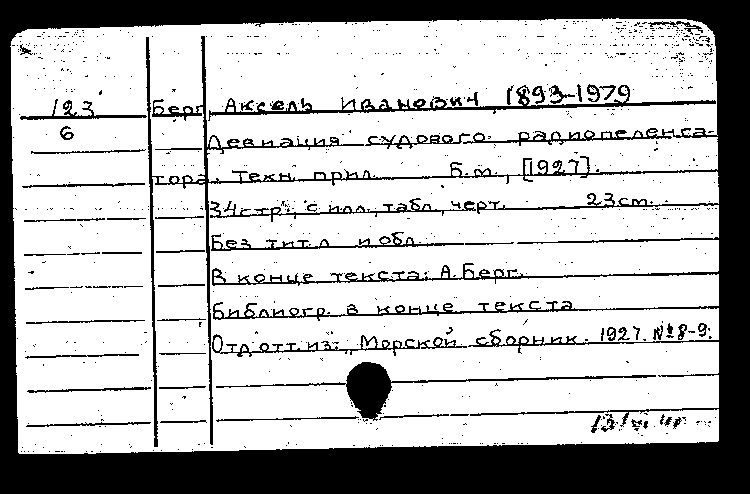 123 Берг, Аксель Иванович 1893-1979
6 Девиация судового радиопеленга-
тора. Техн. прил. Б.м., [1927].
34 стр., с илл., табл., черт. 23 см.
Без тит.л. и обл.
В конце текста: А. Берг.
Библиогр. в конце текста
Отд. отт. из: "Морской сборник. 1927. № 8-9.